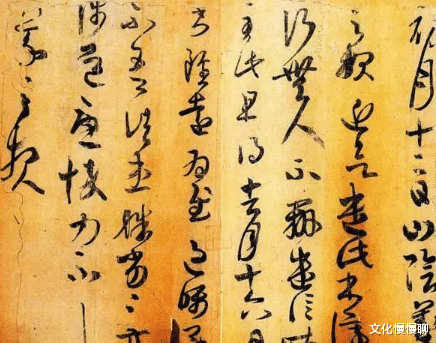 初月十二日山陰羲
之報近欲遣此書停
行無人不辦遣信昨
至此且得去月十六日
書雖遠為慰過囑
不吾諸患殊劣劣方
涉道憂悴力不
羲之報
文化慢慢聊